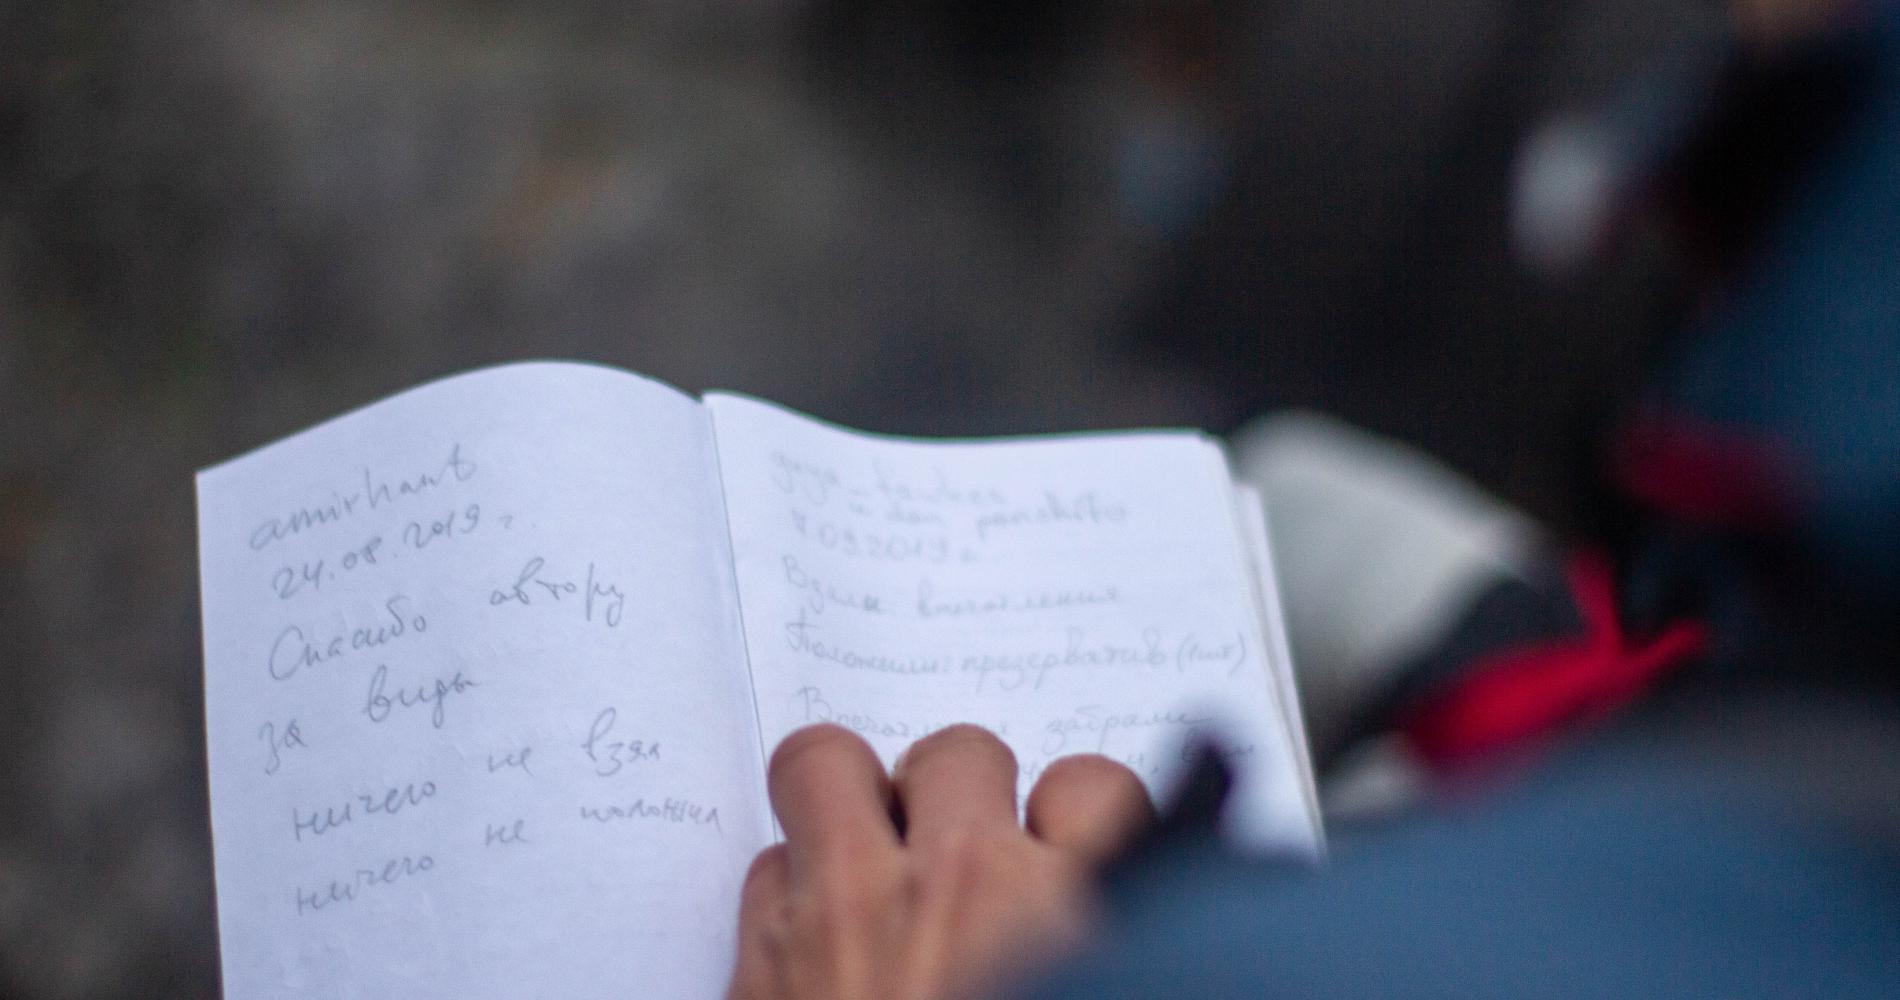 amirhant
24.08.2019 г.
Спасибо автору
за виды
ничего не взял
ничего не положил
7.09.2019 г
Взяли впечатления
Положили: презерватив (1шт)
Впечатления забрали